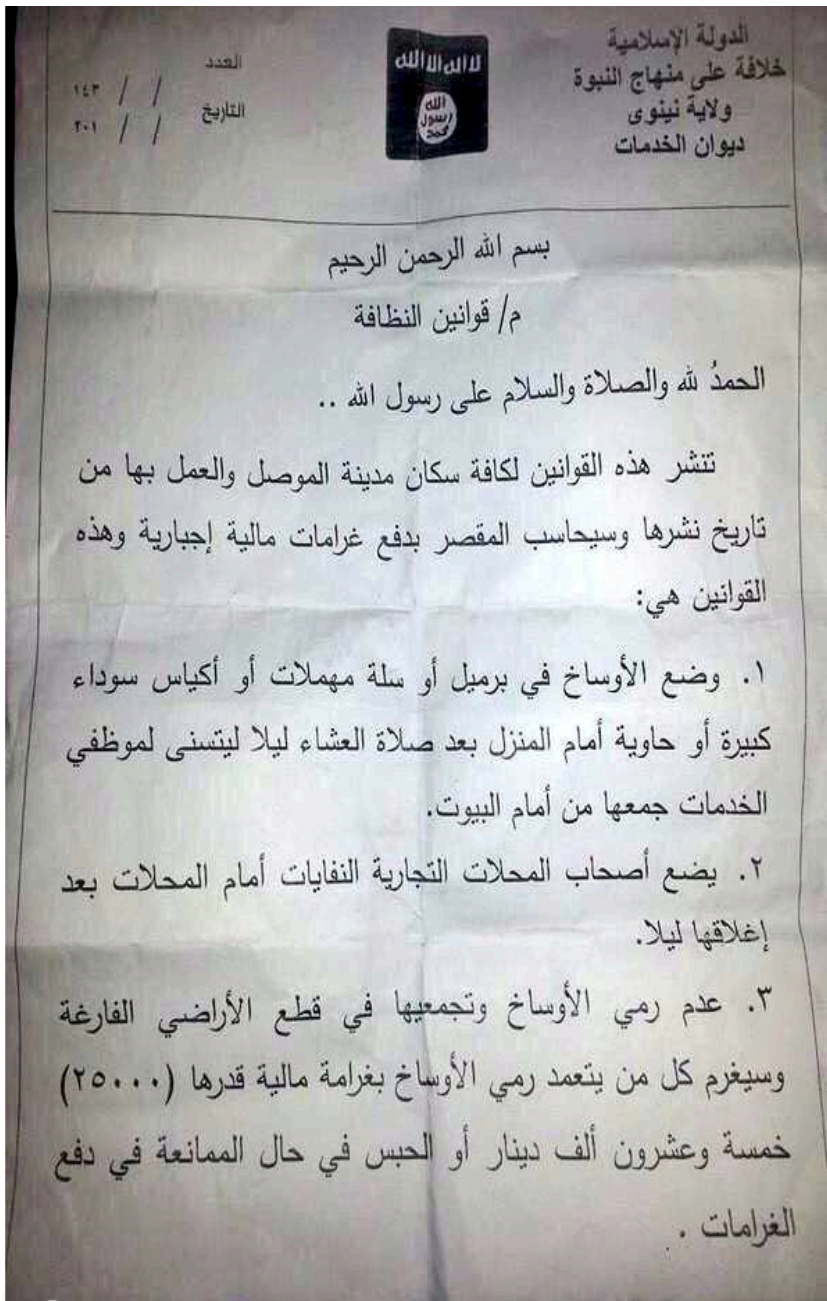 الدولة الإسلامية
خلافة على منهاج النبوة
ولاية نينوى
ديوان الخدمات
لا اله الا الله
الله
رسول
محمد
العدد
/ / ١٤٣
التاريخ
/ / ٢٠١
بسم الله الرحمن الرحيم
م/ قوانين النظافة
الحمدُ لله والصلاة والسلام على رسول الله ..
تنشر هذه القوانين لكافة سكان مدينة الموصل والعمل بها من
تاريخ نشرها وسيحاسب المقصر بدفع غرامات مالية إجبارية وهذه
القوانين هي:
١. وضع الأوساخ في برميل أو سلة مهملات أو أكياس سوداء
كبيرة أو حاوية أمام المنزل بعد صلاة العشاء ليلا ليتسنى لموظفي
الخدمات جمعها من أمام البيوت.
٢. يضع أصحاب المحلات التجارية النفايات أمام المحلات بعد
إغلاقها ليلا.
٣. عدم رمي الأوساخ وتجمعيها في قطع الأراضي الفارغة
وسيغرم كل من يتعمد رمي الأوساخ بغرامة مالية قدرها (٢٥٠٠٠)
خمسة وعشرون ألف دينار أو الحبس في حال الممانعة في دفع
الغرامات .